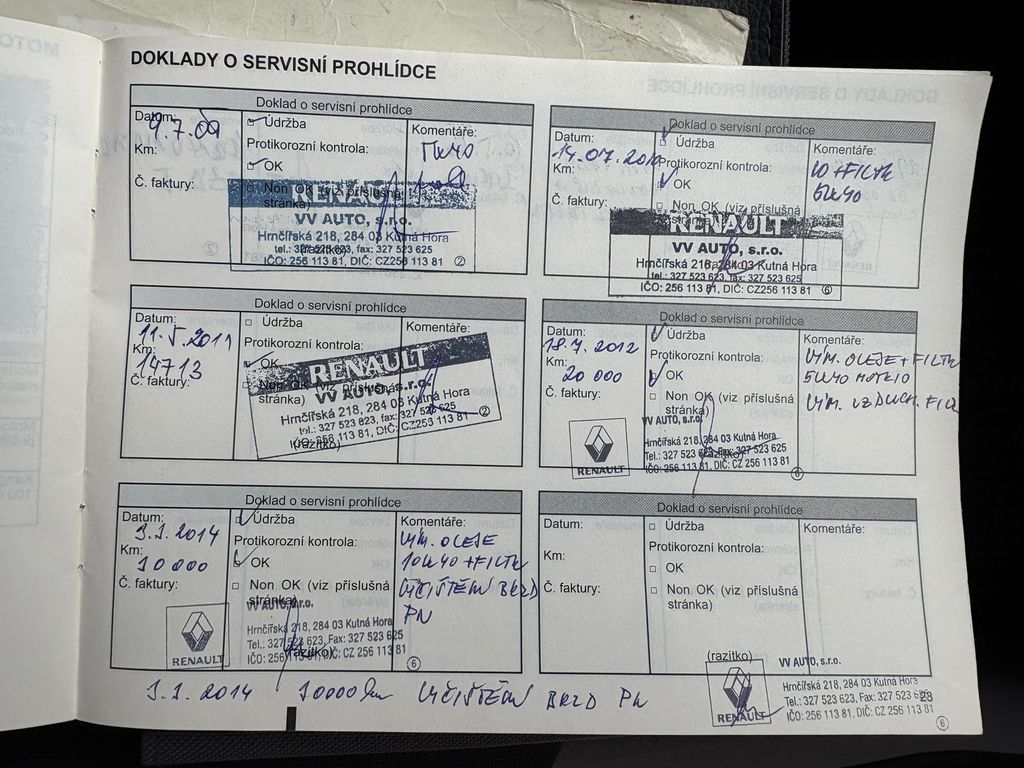 DOKLADY O SERVISNÍ PROHLÍDCE
Doklad o servisní prohlídce
Datum:
9.7.09
Km:
Č. faktury:
Údržba
Protikorozní kontrola:
OK
Non OK (viz příslušná
stránka)
Komentáře:
RENAULT
VV AUTO, s.r.o.
Hrnčířská 218, 284 03 Kutná Hora
tel.: 327 523 623, fax: 327 523 625
IČO: 256 113 81, DIČ: CZ256 113 81 ②
Doklad o servisní prohlídce
Datum:
14.07.2010
Km:
Č. faktury:
Údržba
Protikorozní kontrola:
OK
Non OK (viz příslušná
stránka)
Komentáře:
+FILTR
5W40
RENAULT
VV AUTO, s.r.o.
Hrnčířská 218, 284 03 Kutná Hora
tel.: 327 523 623, fax: 327 523 625
IČO: 256 113 81, DIČ: CZ256 113 81 ⑥
Doklad o servisní prohlídce
Datum:
11.5.2011
Km:
14713
Č. faktury:
Údržba
Protikorozní kontrola:
OK
Non OK (viz příslušná
stránka)
(razítko)
Komentáře:
RENAULT
VV AUTO, s.r.o.
Hrnčířská 218, 284 03 Kutná Hora
tel.: 327 523 623, fax: 327 523 625
IČO: 256 113 81, DIČ: CZ256 113 81 ②
Doklad o servisní prohlídce
Datum:
18.7.2012
Km:
20 000
Č. faktury:
Údržba
Protikorozní kontrola:
OK
Non OK (viz příslušná
stránka)
Komentáře:
VÝM. OLEJE+FILTR
5W40
VÝM. VZDUCH. FIL
RENAULT
VV AUTO, s.r.o.
Hrnčířská 218, 284 03 Kutná Hora
Tel.: 327 523 623, Fax: 327 523 625
IČO: 256 113 81, DIČ: CZ 256 113 81
⑥
Doklad o servisní prohlídce
Datum:
3.3.2014
Km:
30 000
Č. faktury:
Údržba
Protikorozní kontrola:
OK
Non OK (viz příslušná
stránka)
(razítko)
Komentáře:
VÝM. OLEJE
10W40+FILTR
VYČIŠTĚNÍ BRZD
PN
RENAULT
VV AUTO, s.r.o.
Hrnčířská 218, 284 03 Kutná Hora
Tel.: 327 523 623, Fax: 327 523 625
IČO: 256 113 81, DIČ: CZ 256 113 81
⑥
Doklad o servisní prohlídce
Datum:
Km:
Č. faktury:
Údržba
Protikorozní kontrola:
OK
Non OK (viz příslušná
stránka)
Komentáře:
(razítko)
3.3.2014 30000km VYČIŠTĚNÍ BRZD PN
RENAULT
VV AUTO, s.r.o.
Hrnčířská 218, 284 03 Kutná Hora
Tel.: 327 523 623, Fax: 327 523 625
IČO: 256 113 81, DIČ: CZ 256 113 81
⑥